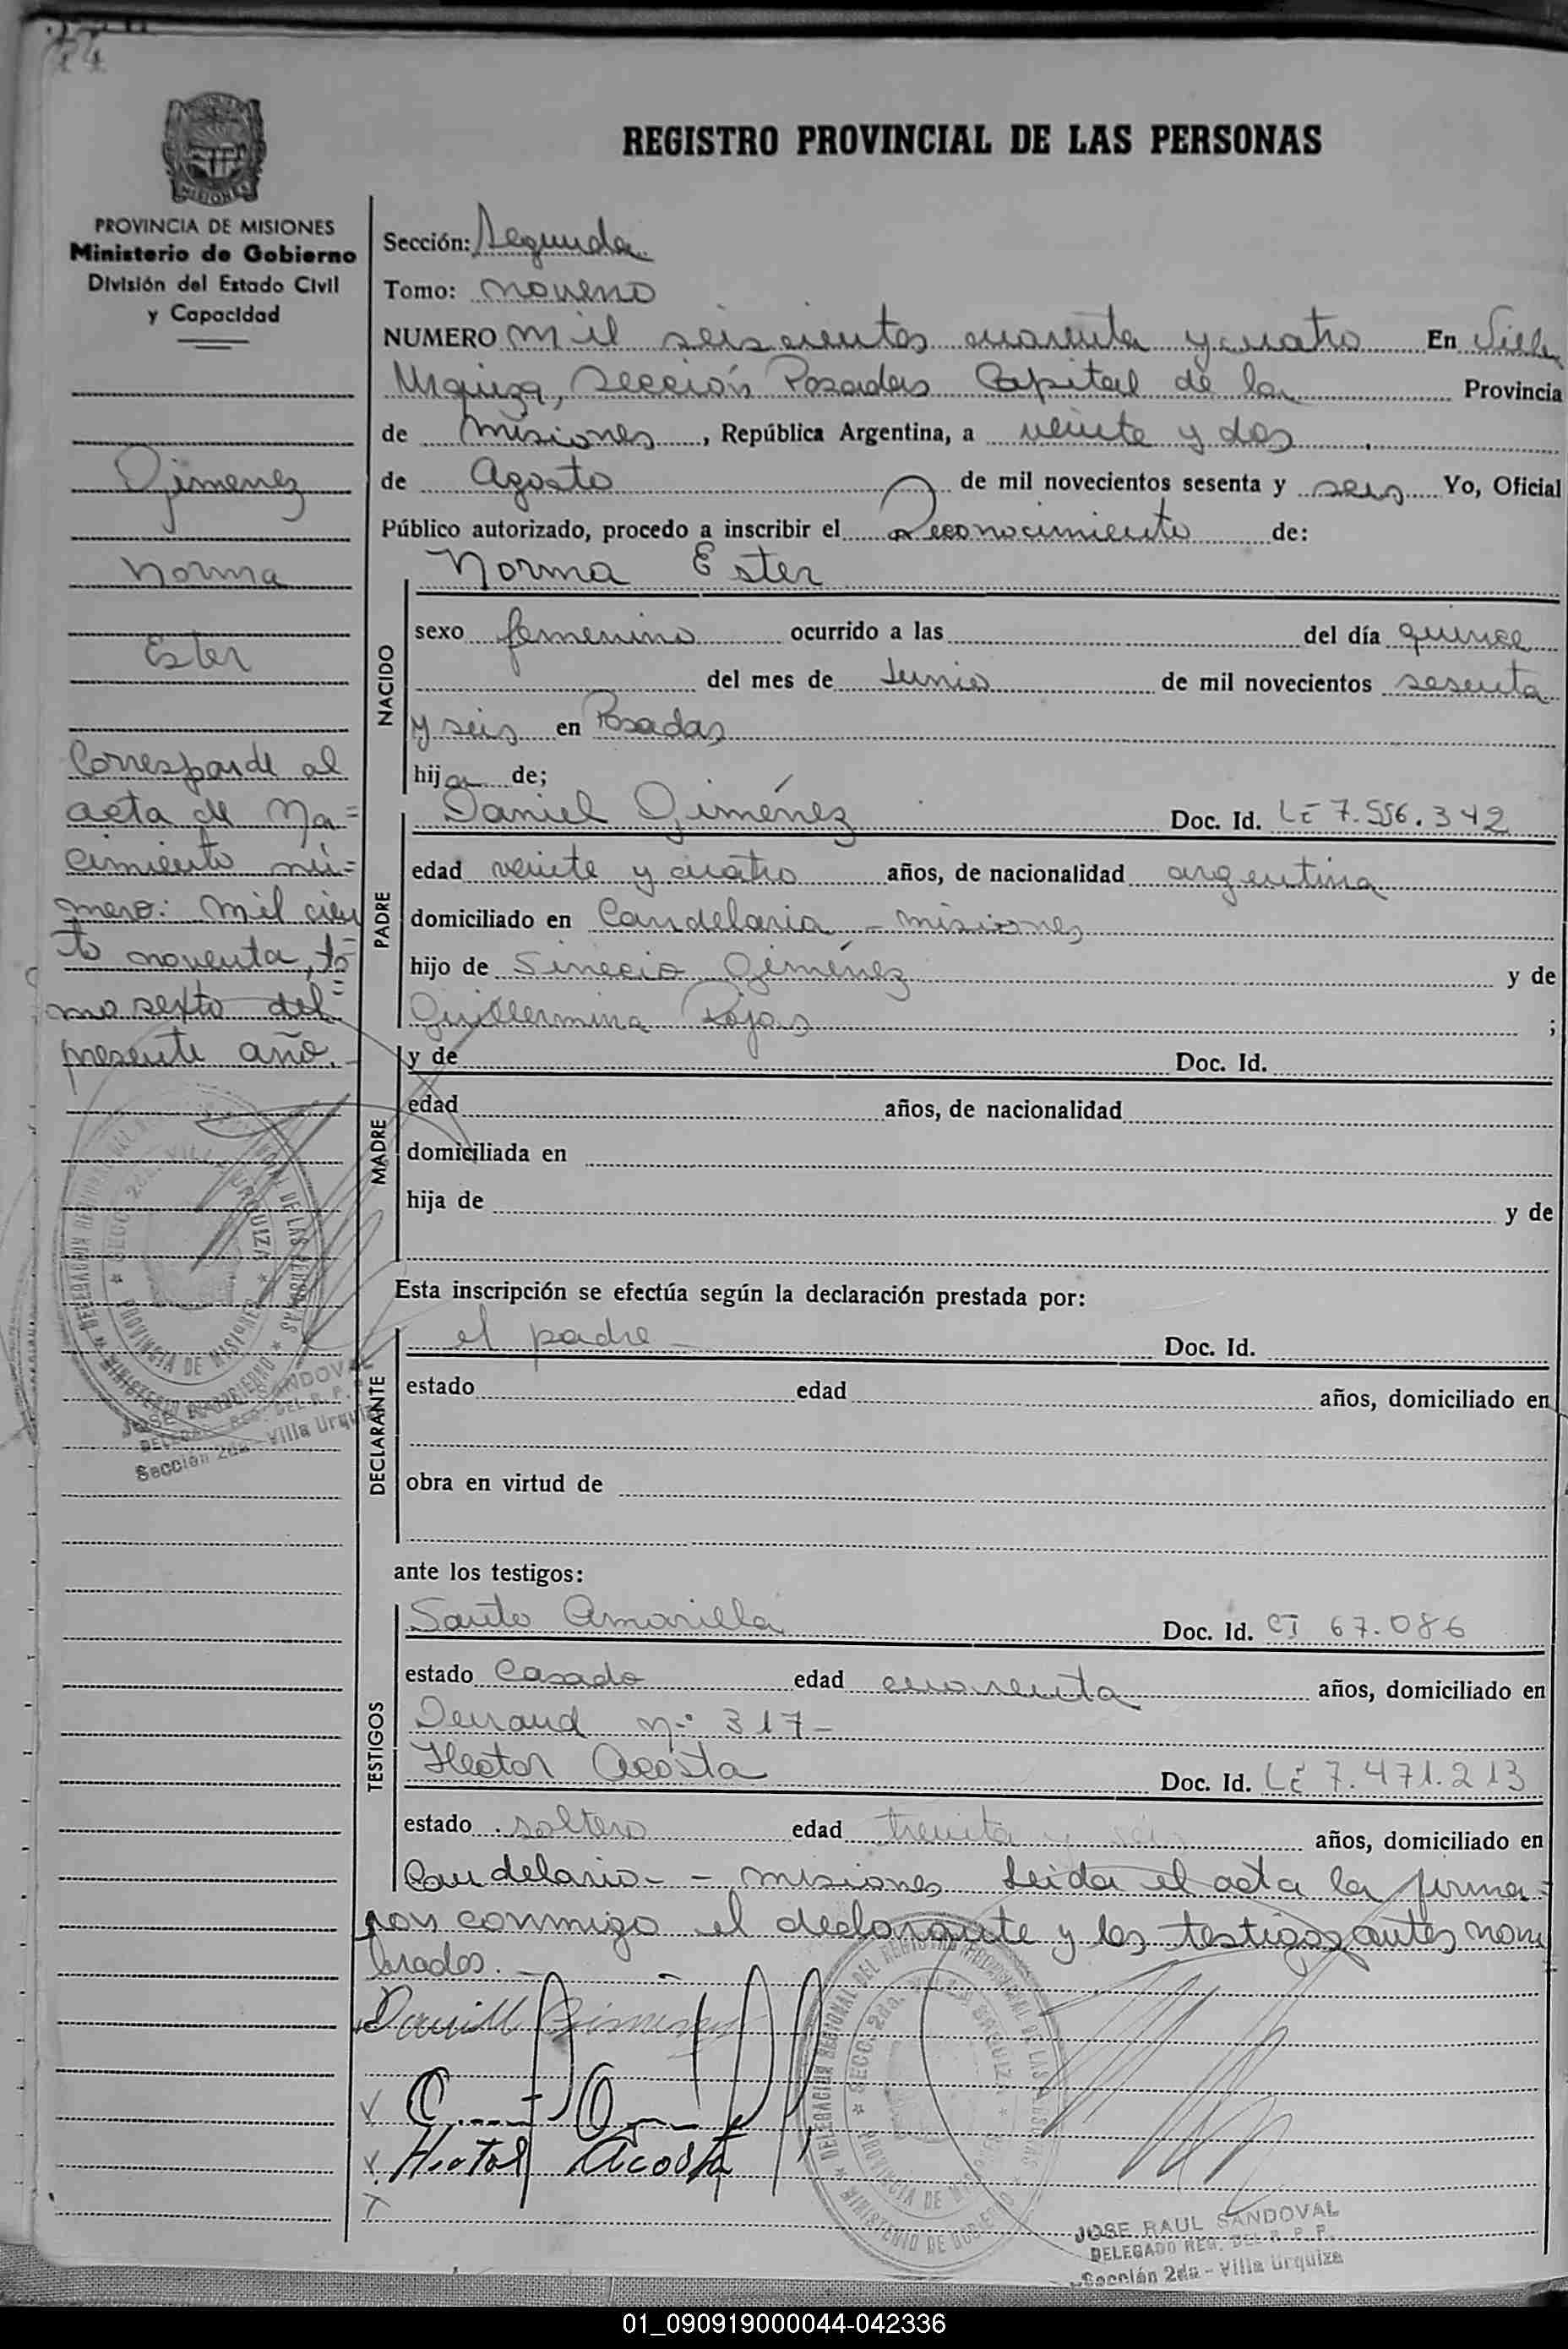 REGISTRO PROVINCIAL DE LAS PERSONAS
MISIONES
PROVINCIA DE MISIONES
Ministerio de Gobierno
División del Estado Civil
y Capacidad
Gimenez
Norma
Ester
Corresponde al
acta de Na=
cimiento nú=
mero: mil cien
to noventa, to=
mo sexto del
presente año.
Sección: Segunda
Tomo: noveno
NUMERO mil seiscientos cuarenta y cuatro En Villa
Urquiza, Sección Posadas Capital de la Provincia
de Misiones, República Argentina, a veinte y dos
de Agosto de mil novecientos sesenta y seis Yo, Oficial
Público autorizado, procedo a inscribir el Reconocimiento de:
Norma Ester
NACIDO
sexo femenino ocurrido a las del día quince
del mes de Junio de mil novecientos sesenta
y seis en Posadas
hija de;
PADRE
Daniel Giménez Doc. Id. LE 7.556.342
edad veinte y cuatro años, de nacionalidad argentina
domiciliado en Candelaria - misiones
hijo de Sinecio Giménez y de
Guillermina Rojas ;
MADRE
y de Doc. Id.
edad años, de nacionalidad
domiciliada en
hija de y de
Esta inscripción se efectúa según la declaración prestada por:
DECLARANTE
el padre - Doc. Id.
estado edad años, domiciliado en
obra en virtud de
ante los testigos:
TESTIGOS
Santo Amarilla Doc. Id. CI 67.086
estado Casado edad cuarenta años, domiciliado en
nº 317-
Hector Acosta Doc. Id. LE 7.471.213
estado soltero edad treinta y seis años, domiciliado en
Candelaria - misiones Leida el acta la firma=
ron conmigo el declarante y los testigos antes nom
brados. -
Daniel Gimenez
Hector Acosta
DELEGACION REGIONAL DEL REGISTRO PROVINCIAL DE LAS PERSONAS
SECC. 2da. VILLA URQUIZA
PROVINCIA DE MISIONES
MINISTERIO DE GOBIERNO
JOSE RAUL SANDOVAL
DELEGADO REG. DEL R. P. P.
Sección 2da - Villa Urquiza
DELEGACION REGIONAL DEL REGISTRO PROVINCIAL DE LAS PERSONAS
SECC. 2da. VILLA URQUIZA
PROVINCIA DE MISIONES
MINISTERIO DE GOBIERNO
JOSE RAUL SANDOVAL
DELEGADO REG. DEL R. P. P.
Sección 2da - Villa Urquiza
01_090919000044-042336